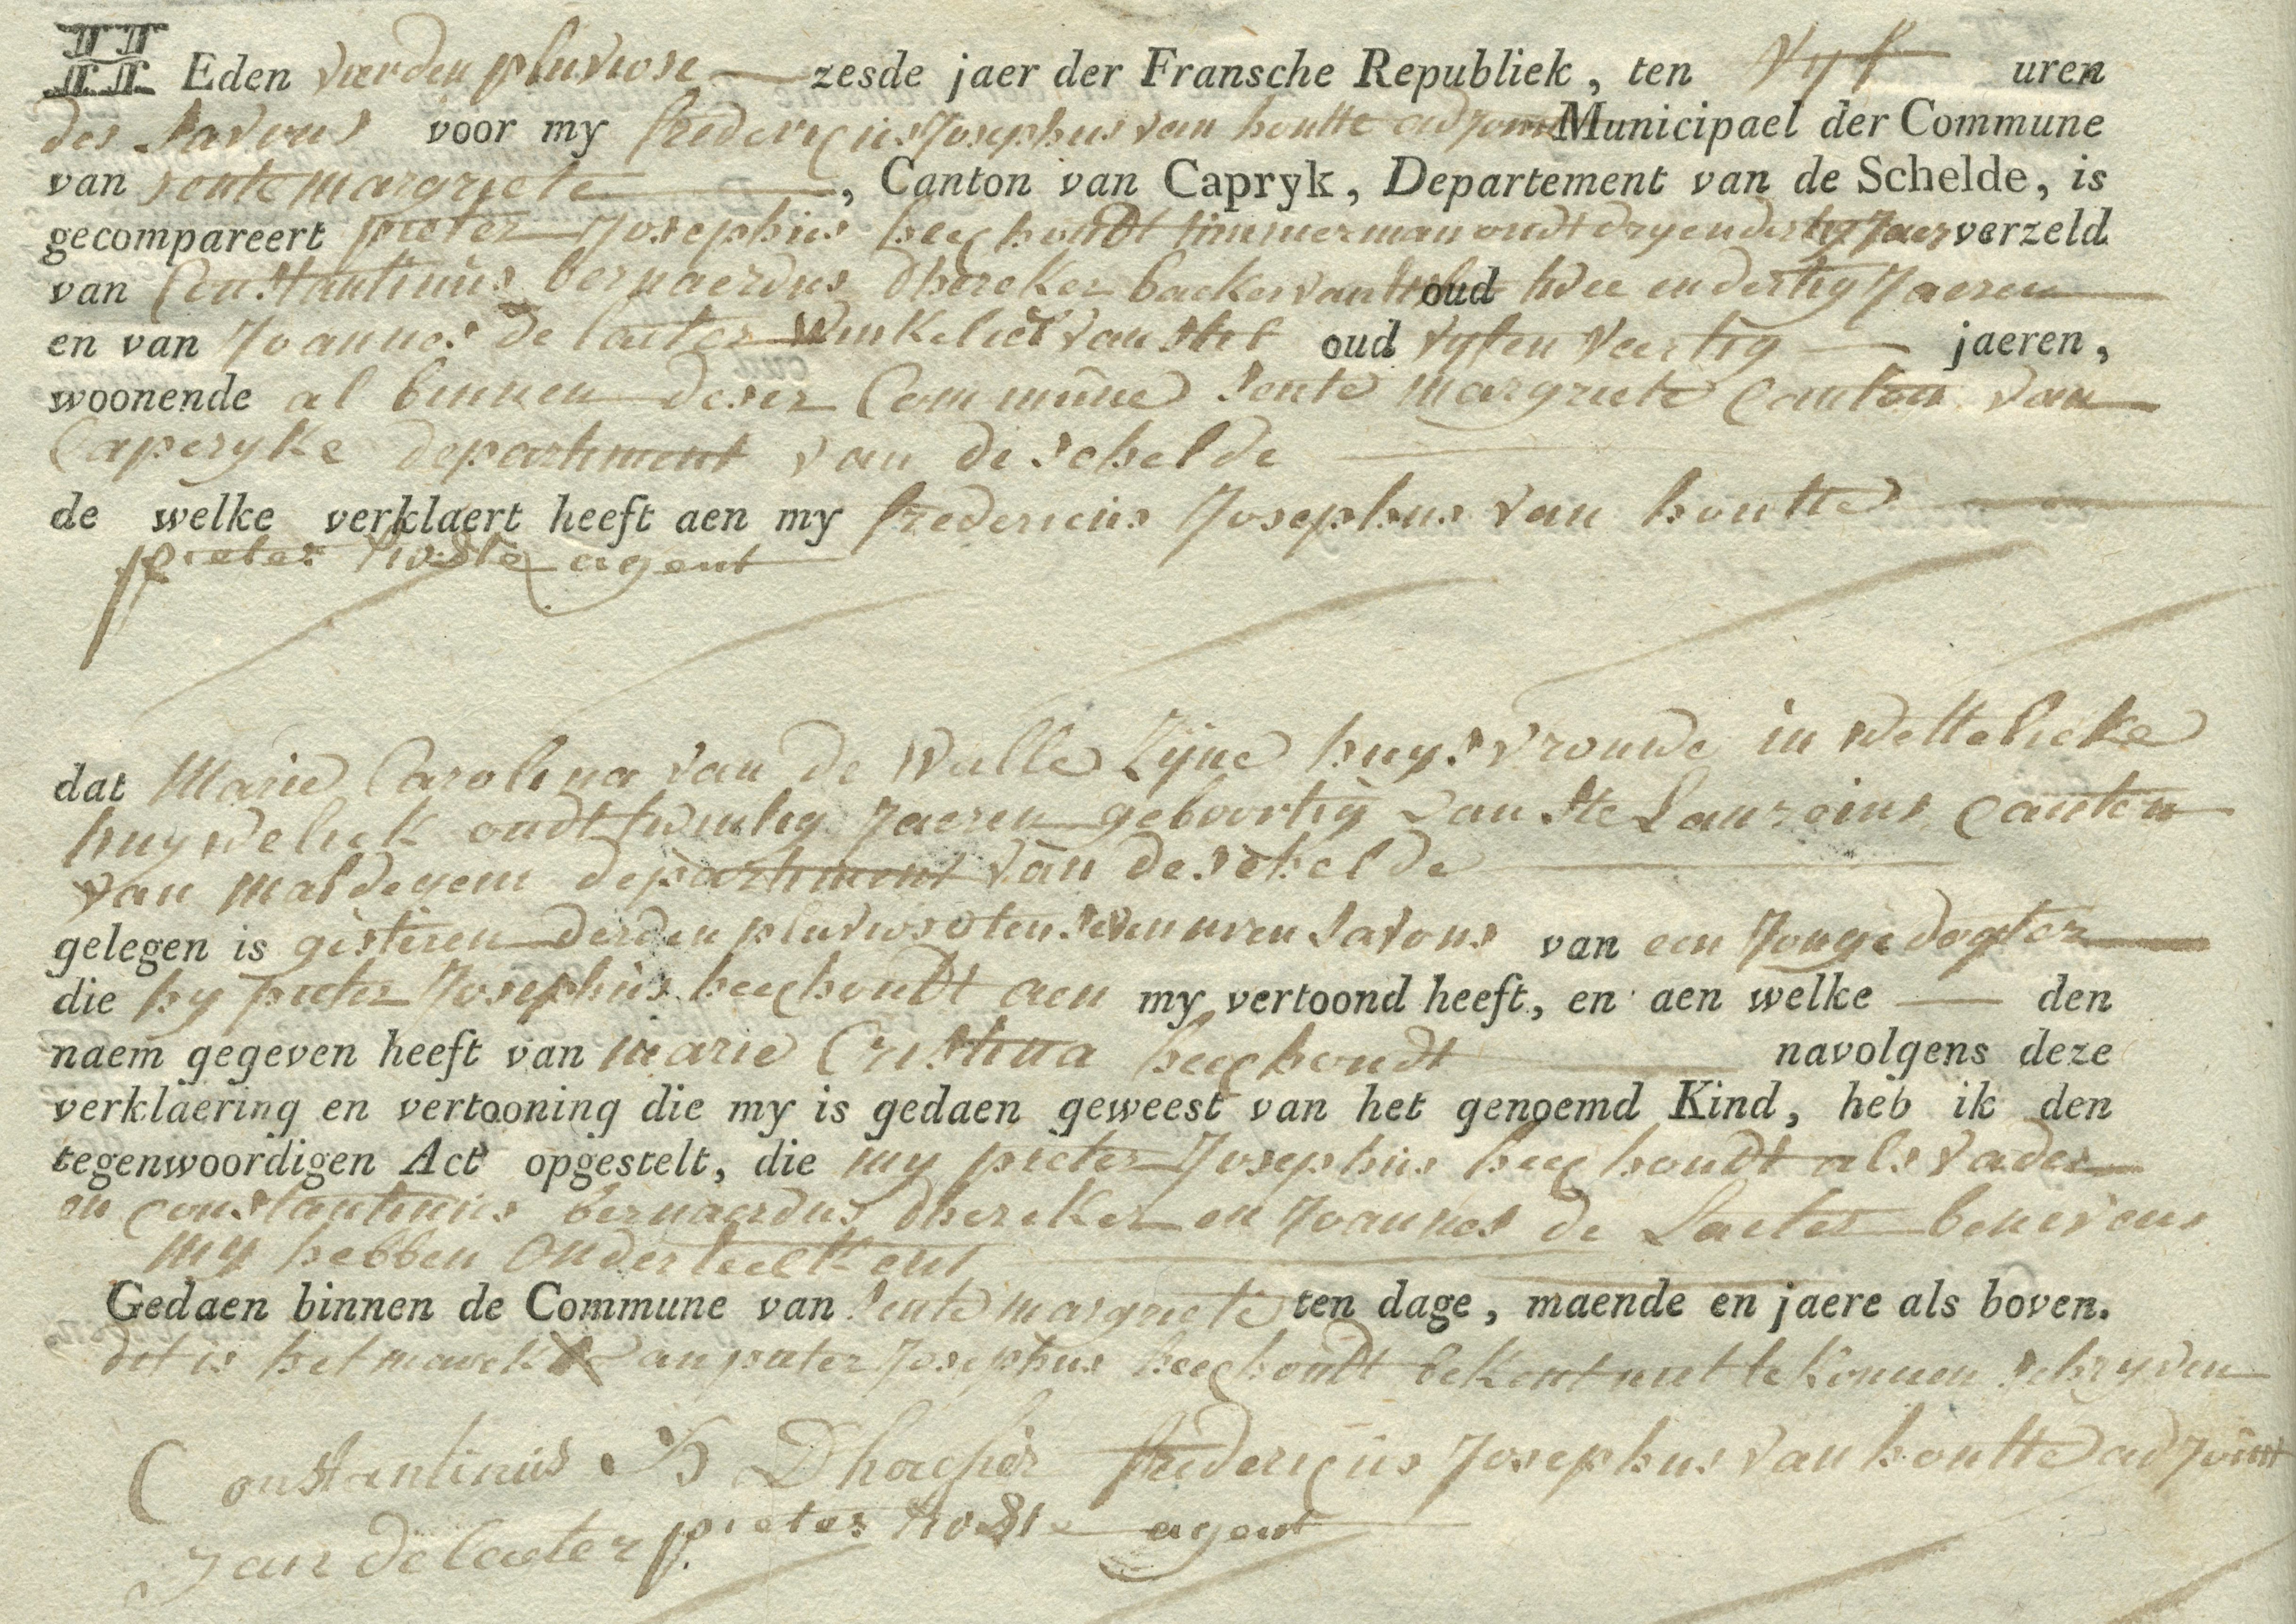 HEden vierden pluviose zesde jaer der Fransche Republiek, ten vyf uren
des savons voor my fredericus Josephus van houtte adjoint Municipael der Commune
van sente margriete, Canton van Capryk, Departement van de Schelde, is
gecompareert pieter Josephus heeghoudt timmerman oudt dryendertig Jaer verzeld
van Constantinus bernaerdus dhereker backer van oud twee en dertig Jaeren
en van Joannes De laeter Winkelier van stiel oud vyfen veertig jaeren,
woonende al binnen deser Commune sente margriete Canton van
Caperyke department van de schelde
de welke verklaert heeft aen my fredericus Josephus van houtte
pieter agent
dat Marie Carolina van de Walle Zijne huysvrouwe in wettelicke
huywelick oudt twintig Jaeren geboortig van Ste Laureins Canton
van maldegem department van de schelde
gelegen is gisteren derden pluviose ten seven uren savons van een Jonge dogter
die hy pieter Josephus heeghoudt aen my vertoond heeft, en aen welke den
naem gegeven heeft van marie Cristina heeghoudt navolgens deze
verklaering en vertooning die my is gedaen geweest van het genoemd Kind, heb ik den
tegenwoordigen Act opgestelt, die my pieter Josephus heeghoudt als vader
en Constantinus bernaerdus dhereker en Joannes de Laeter benevens
my hebben onderteekent
Gedaen binnen de Commune van sente margriete ten dage, maende en jaere als boven.
dit is het marck X van pieter Josephus heeghoudt bekent niet te konnen schryven
Constantinus B fredericus Josephus van houtte adjoint
Jan de laeter pieter agent